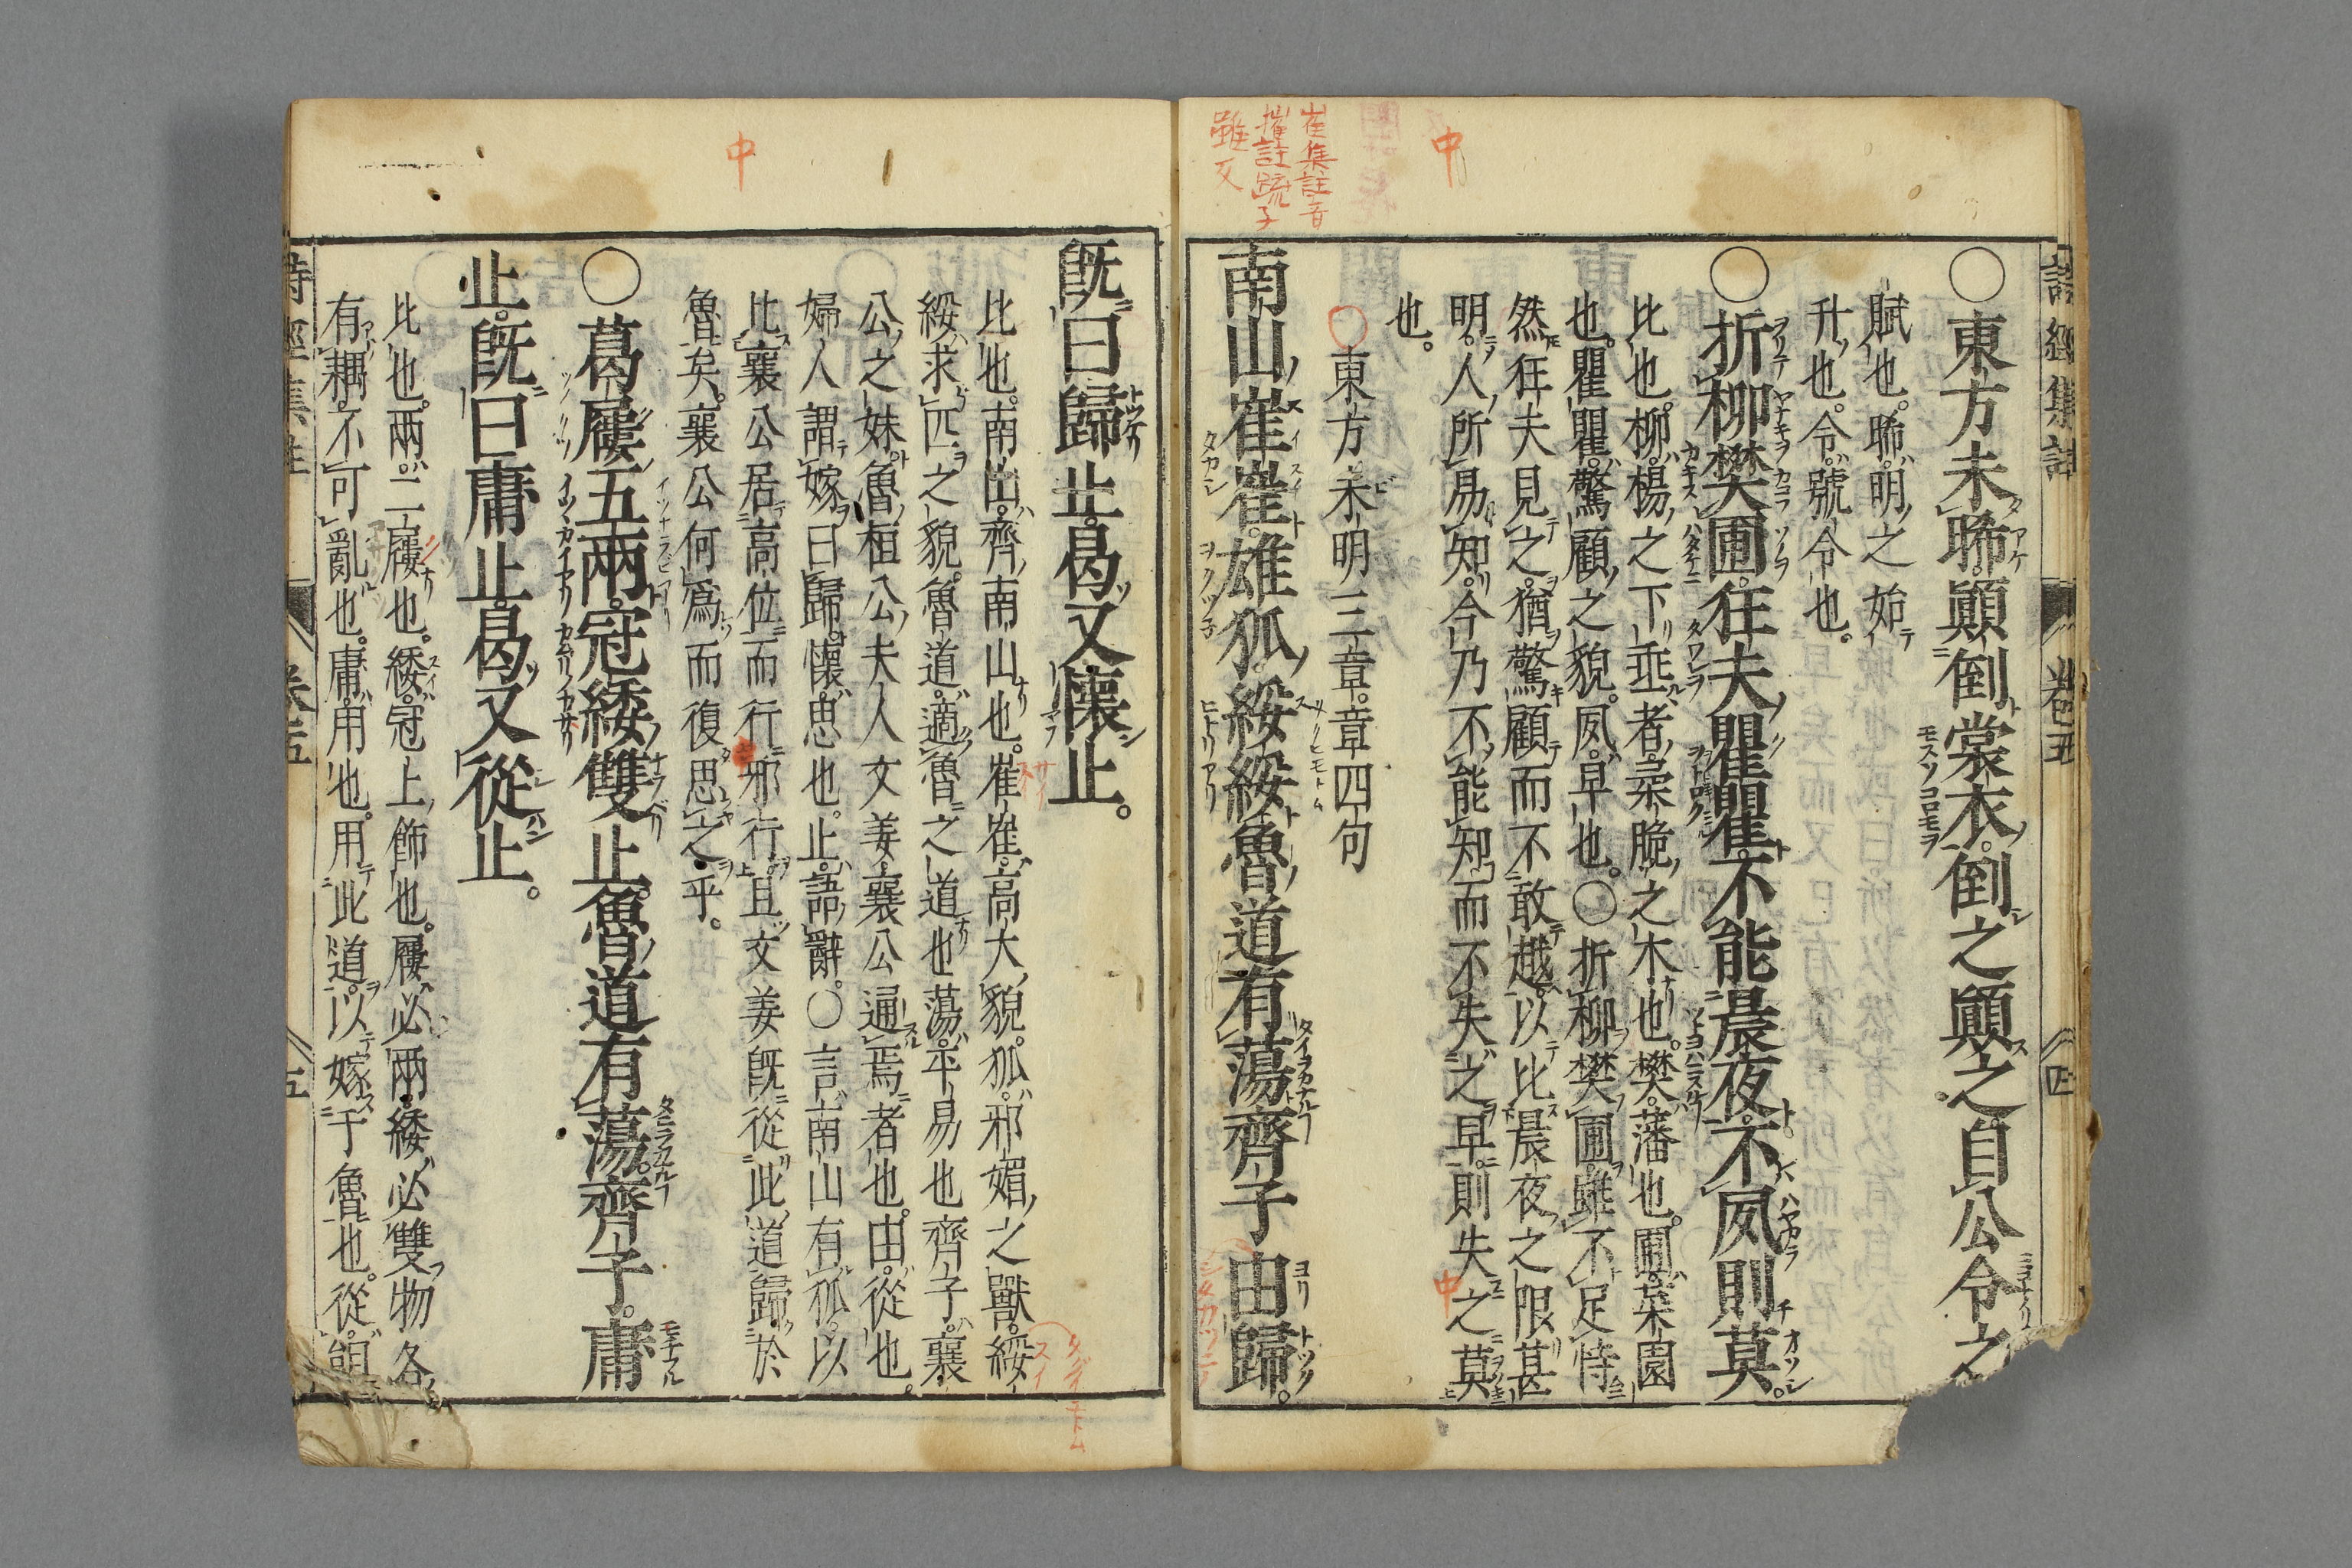 詩經集註 卷五 四
○東方未晞顚倒裳衣。倒之顚之自公令之
賦也。晞。明之始
升也。令。號令也。
○折柳樊圃。狂夫瞿瞿。不能晨夜。不夙則莫。
比也。柳。楊之下垂者。柔脆之木也。樊。藩也。圃。菜園
也。瞿瞿。驚顧之貌。夙。早也。○折柳樊圃。雖不足恃
然狂夫見之。猶驚顧而不敢越。以比晨夜之限甚
明。人所易知。今乃不能知而不失之早。則失之莫
也。
○東方未明三章。章四句
南山崔崔。雄狐綏綏魯道有蕩齊子由歸。
崔集註音
摧註疏子
雖反
中
中
既曰歸止。曷又懷止。
比也。南山。齊南山也。崔崔。高大貌。狐。邪媚之獸。綏
綏。求匹之貌。魯道。適魯之道也蕩。平易也齊子。襄
公之妹。魯桓公夫人文姜。襄公通焉者也。由。從也。
婦人謂嫁曰歸。懷。思也。止。語辭。○言南山有狐。以
比襄公居高位而行邪行。且文姜既從此道歸於
魯矣。襄公何爲而復思之乎。
○葛屨五兩。冠緌雙止。魯道有蕩。齊子。庸
止。既曰庸止。曷又從止。
比也。兩。二屨也。緌。冠上飾也。屨必兩。緌必雙。物各
有耦。不可亂也。庸。用也。用此道。以嫁于魯也。從。
中
詩經集註 卷五 五